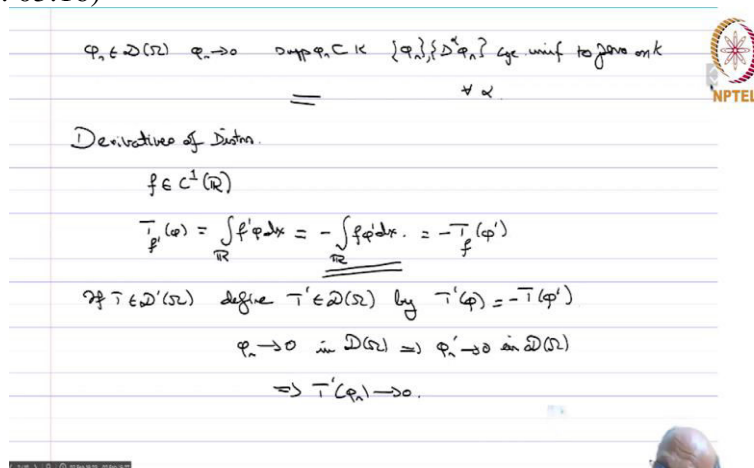 φₙ ∈ 𝒟(Ω) φₙ → 0 supp φₙ ⊂ K {φₙ}, {D^α φₙ} cge unif to zero on k
∀ α.
NPTEL
Derivatives of Distns.
f ∈ C¹(ℝ)
T_{f'}(φ) = ∫_ℝ f'φ dx = - ∫_ℝ fφ' dx. = -T_f(φ')
If T ∈ 𝒟'(Ω) define T' ∈ 𝒟(Ω) by T'(φ) = -T(φ')
φₙ → 0 in 𝒟(Ω) ⇒ φₙ' → 0 in 𝒟(Ω)
⇒ T'(φₙ) → 0.